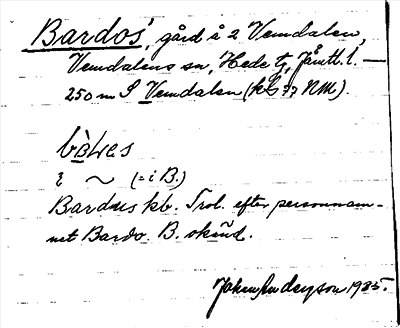 Bardos, gård å 2 Vemdalen,
Vemdalens sn, Hede tg, Jämtl. l. —
250 m S Vemdalen (kbl 77 NM).
ɩ ~ (= i B.)
Bardus kb. Trol. efter personnam-
net Bardo. B. okänd.
Johan Anderson 1935.